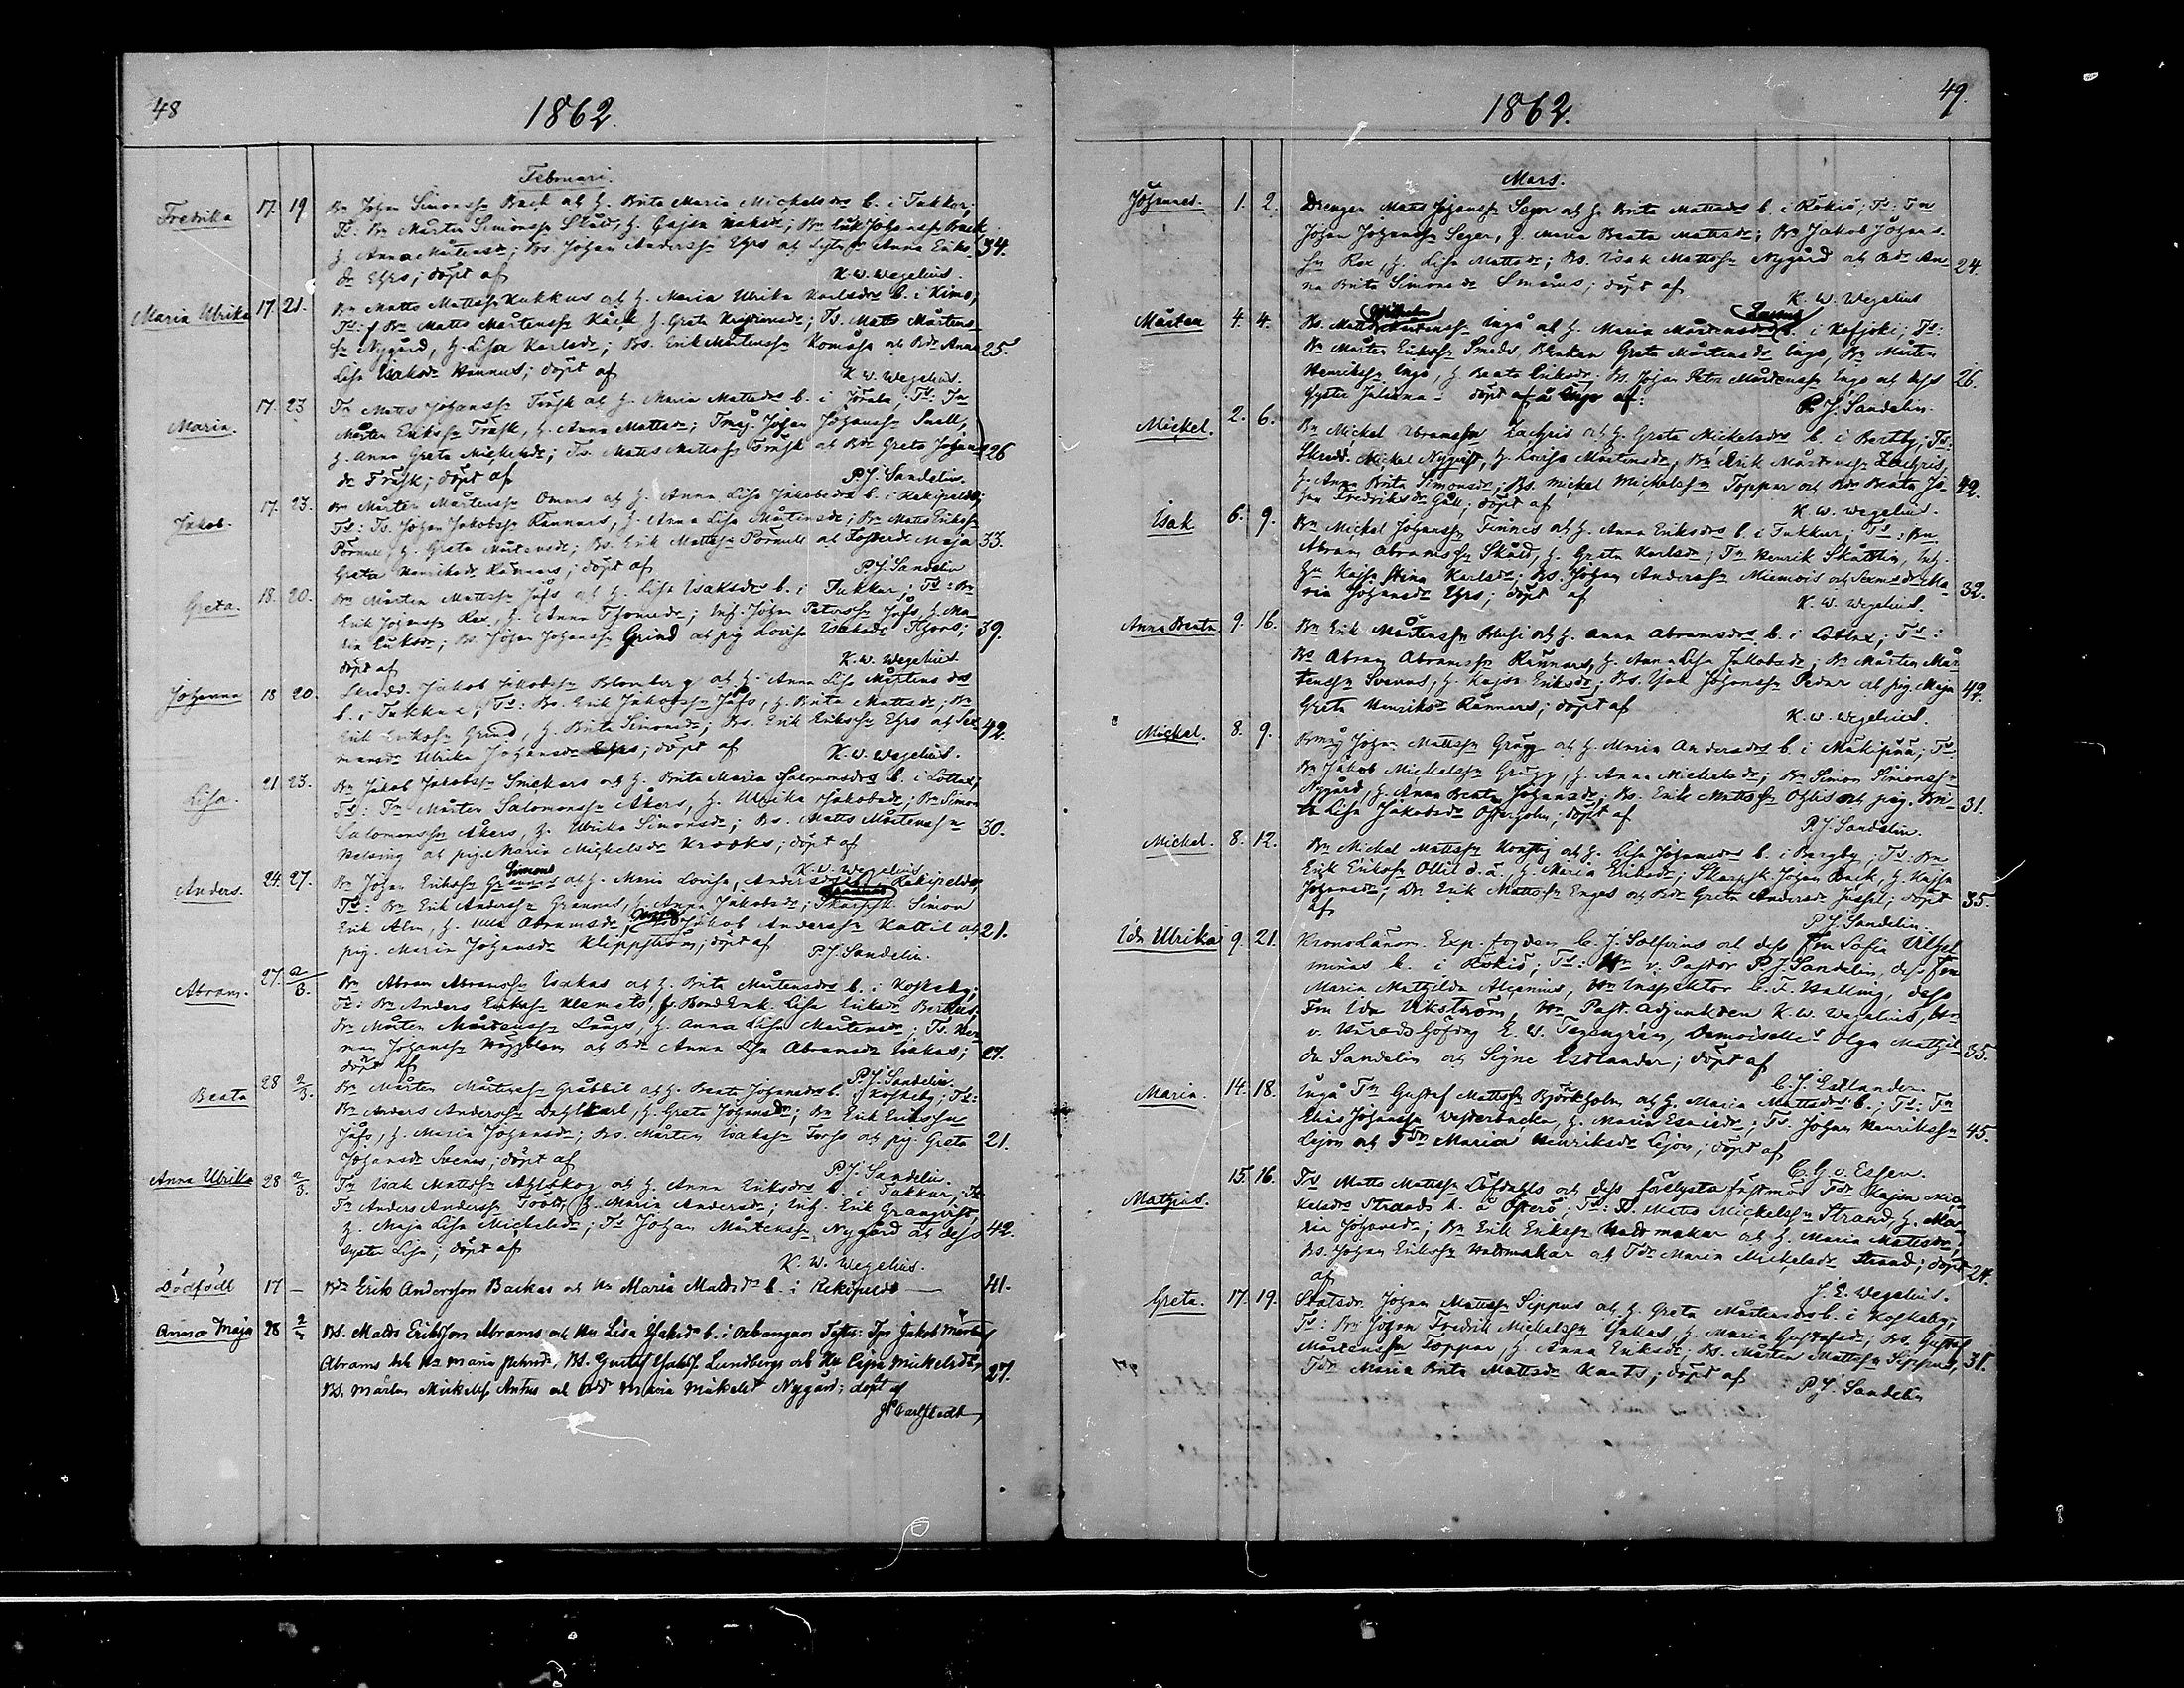 48
1862.
Februari.
Fredrika 17. 19 Bn Johan Simonss Back och h. Brita Maria Mickelsdr b. i Tukkur;
Ts: Bn Mårten Simonss Skåd, h. Cajsa Isaksdr; Bn Erik Johanss Back
h. Anna Mårtensdr; Bs. Johan Anderss Ehrs och Anna Eriks- 34.
dr Ehrs; döpt af K. W. Wegelius.
Maria Ulrika 17. 21. Bn Matts Mattss Kukkus och h. Maria Ulrika Karlsdr b. i Kimo;
Ts: Bn Matts Mårtenss Käck h. Greta; Ts. Matts Mårtens-
sn Nygård, h. Lisa Karlsdr; Bs. Erik Mårtenss Komåsa och Bdr Anna 25.
Lisa Isaksdr Hannus; döpt af K. W. Wegelius.
Maria. 17. 23 Tn Matts Johanss Träsk och h. Maria Mattsdr b. i; Ts: Tn
Mårten Erikss Träsk, h. Anna Mattsdr; Johan Johanss Snell,
h. Anna Greta Mickelsdr; Ts. Matts Mattss Träsk och Bdr Greta Johans- 26
dr Träsk; döpt af P. J. Sandelin.
Jakob. 17. 23. Bn Mårten Mårtenss Omars och h. Anna Lisa Jakobsdr b. i Rekipeldo;
Ts: Ts. Johan Jakobss Rannars, h. Anna Lisa Mårtensdr; Bn Matts Erikss
Pörnull, h. Greta Mårtensdr; Bs. Erik Mattss Pörnull och Fosterdr Maja 33.
Greta Henriksdr Rannars; döpt af P. J. Sandelin
Greta. 18. 20. Bn Mårten Mattss Jåfs och h. Lisa Isaksdr b. i Tukkur; Ts: Bn
Erik Johanss Rex, h. Anna Thomasdr; Inh. Johan Peterss Jåfs, h. Ma-
ria Eriksdr; Bs. Johan Johanss Grind och pig Lovisa Isaksdr; 39.
döpt af K. W. Wegelius.
Johanna 18 20. Skrädd. Jakob Jakobss Blomberg och h. Anna Lisa Mårtensdr
b. i Tukkur; Ts: Bs. Erik Jakobss Jåfs, h. Brita Mattsdr; Bn
Erik Erikss Grind, h. Brita Simonsdr; Bs. Erik Erikss Ehrs och Sex- 42.
mansdr Ulrika Johansdr Ehrs; döpt af K. W. Wegelius.
Lisa. 21. 23. Bn Jakob Jakobss Smekars och h. Brita Maria Salomonsdr b. i Lottax;
Ts: Tn Mårten Salomonss Åkers, h. Ulrika Jakobsdr; Bn Simon
Salomonss Åkers, h. Ulrika Simonsdr; Bs. Matts Mårtenss 30.
Helsing och pig. Maria Mickelsdr Krooks; döpt af K. W. Wegelius
Anders. 24. 27. Bn Johan Erikss Simons och h. Maria Lovisa Andersdr Rekipeldo
Ts: Bn Erik Anderss Grannas, h. Anna Jakobsdr; Skarpsk. Simon
Erik Alm, h. Ulla Abramsdr; Jakob Anderss Kattil och 21.
pig. Maria Johansdr Klippström; döpt af P. J. Sandelin.
Abram. 27. 2/3. Bn Abram Abramss Isakas och h. Brita Mårtensdr b. i Koskeby;
Ts: Bn Anders Erikss Klemets, BondEnk. Lisa Eriksdr Bertils;
Bn Mårten Mårtenss Långs, h. Anna Lisa Mårtensdr; Ts. Her-
man Johanss Häggblom och Bdr Anna Lisa Abramsdr Isakas; 27.
döpt af P. J. Sandelin.
Beata 28 2/3. Bn Mårten Mårtenss Gråbbil och h. Beata Johansdr b. i Koskeby; Ts:
Bn Anders Anderss Dahlkarl, h. Greta Johansdr; Bn Erik Erikss
Jåfs, h. Maria Johansdr; Bs. Mårten Isakss Forss och pig. Greta 21.
Johansdr Svens; döpt af P. J. Sandelin.
Anna Ulrika 28 2/3. Tn Isak Mattss Ahlskog och h. Anna Eriksdr b. i Tukkur, Ts
Tn Anders Anderss Tööts, h. Maria Andersdr; Inh. Erik Granqvist,
h. Maja Lisa Mickelsdr; Ts Johan Mårtenss Nygård och dess 42.
syster Lisa; döpt af K. W. Wegelius.
Dödfödt 17 — Bn Erik Andersson Backas och Hu Maria Matsdr b. i Rekipeldo — 41.
Anna Maja 28 2/3 Bs. Matts Eriksson Abrams och Hu Lisa Isaksdr b. i Jakob Mårtens
Abrams och Hu Maria, Bs. Gustaf Isakss Lundbergs och Hu Cajsa Mickelsdr,
Bs. Mårten Mickelss Antus och Bdr Maria Mickelsdr Nygård; döpt af 27.
Carlstedt
49.
1862.
Mars.
Johannes. 1. 2. Drengen Matts Johanss Seger och h. Brita Mattsdr b. i Rökiö; Ts: Tn
Johan Johanss Seger, h. Maria Beata Mattsdr; Bn Jakob Johans-
sn Rex, h. Lisa Mattsdr; Bs. Isak Mattss Nygård och Bdr An- 24.
na Brita Simonsdr Smårus; döpt af K. W. Wegelius
Mårten 4. 4. Bs. Matts Mårtenss Ingo och h. Maria Mårtensdr b. i Kafjoki; Ts:
Bn Mårten Erikss Smeds, BEnkan Greta Mårtensdr Ingo, Bn Mårten
Henrikss Ingo, h. Beata Eriksdr. Bs. Johan Petter Mårtenss Ingo och dess 26.
syster Juliana. döpt af P. J. Sandelin.
Mickel. 2. 6. Bn Mickel Abramss Zachris och h. Greta Mickelsdr b. i Bertby; Ts:
Skrädd. Mickel Nyqvist, h. Lovisa Mårtensdr; Bn Erik Mårtenss Zachris,
h. Anna Brita Simonsdr; Bs. Mickel Mickelss Toppar och Bdr Beata Jo- 42.
Fredriksdr Gåll; döpt af K. W. Wegelius.
Isak 6. 9. Bn Mickel Johanss Finnes och h. Anna Eriksdr b. i Tukkur; Ts: Bn
Abram Abramss Skåd, h. Greta Karlsdr; Tn Henrik Skåttkin, Inh.
Kajsa Stina Karlsdr; Bs. Johan Anderss Miemois och Sexmsdr Ma- 32.
ria Johansdr Ehrs; döpt af K. W. Wegelius.
Anna Beata 9. 16. Bn Erik Mårtenss Blusi och h. Anna Abramsdr b. i Lottax; Ts:
Bs Abram Abramss Rannars, h. Anna Lisa Jakobsdr; Bn Mårten Mår-
tenss Svenns, h. Kajsa Eriksdr; Bs. Isak Johanss Pedar och pig. Maja 42.
Greta Henriksdr Rannars; döpt af K. W. Wegelius.
Mickel. 8. 9. Johan Mattss Grägg och h. Maria Andersdr b. i Mäkipää; Ts:
Bn Jakob Mickelss Grägg, h. Anna Mickelsdr; Bn Simon Simonss
Nygård, h. Anna Beata Johansdr; Bs. Erik Mattss Ohlis och pig. Bri- 31.
ta Lisa Jakobsdr Österholm; döpt af P. J. Sandelin.
Mickel. 8. 12. Bn Mickel Mattss och h. Lisa Johansdr b. i Bergby; Ts: Bn
Erik Erikss Ollil d.ä., h. Maria Eriksdr; Skarpsk. Johan Back, h. Kajsa
Johansdr; Dr. Erik Mattss Enges och Bdr Greta Andersdr Jussil; döpt 35.
af P. J. Sandelin.
Ida Ulrika 9. 21. KronoLänsm. Exp. fogden C. J. Solfvius och dess fru Sofia Vilhel-
minas b. i Rökiö; Ts: Hr v. Pastor P. J. Sandelin, dess fru
Maria Mathilda Alcenius, Hr Inspektor C. F. Halling, dess
Fru Ida Vikström, Hr Past. Adjunkten K. W. Wegelius, Hr
v. Häradshöfding E. W. Tegengren, Demoiselles Olga Mathil- 35.
da Sandelin och Signe Estlander; döpt af C. J. Estlander.
Maria. 14. 18. Ingå Tn Gustaf Mattss Björkholm och h. Maria Mattsdr b.; Ts: Tn
Elias Johanss Vesterbacka, h. Maria Esaiedr; Ts. Johan Henrikss 45.
Lejon och Tdr Maria Henriksdr Lejon; döpt af C. G. v. Essen.
Mathius. 15. 16. Ts Matts Mattss Löfdahls och dess förelysta fästmö Tdr Kajsa Mic-
kelsdr Strands b. å Österö; Ts: Ts. Matts Mickelss Strand, h. Ma-
ria Johansdr; Bn Erik Erikss Vadmakar och h. Maria Mattsdr,
Bs. Johan Erikss Vadmakar och Tdr Maria Mickelsdr Strand; döpt 24.
af J. E. Wegelius.
Greta. 17. 19. Statsdr. Johan Mattss Sippus och h. Greta Mårtensdr b. i Koskeby;
Ts: Bn Johan Fredrik Mickelss Isakas, h. Maria Gustafsdr; Bs. Gustaf
Mårtenss Toppar, h. Anna Eriksdr; Bs. Mårten Mattss Sippus, 31.
Tdr Maria Brita Mattsdr Knuts; döpt af P. J. Sandelin